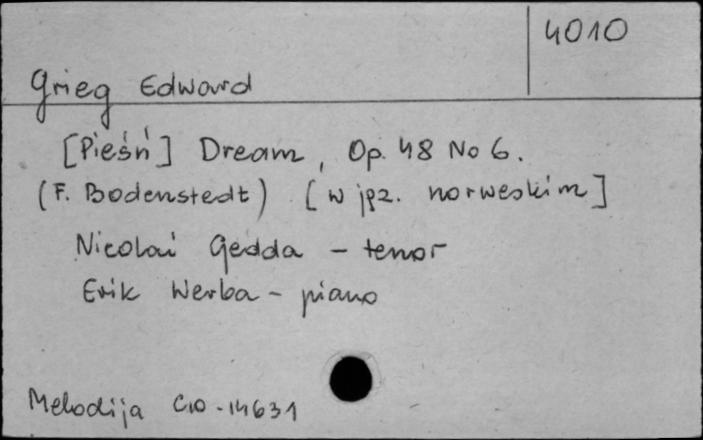 4010
Grieg Edward
[Pieśń] Dream, Op. 48 No 6.
(F. Bodenstedt) [w jęz. norweskim]
Nicolai Gedda - tenor
Erik Werba - piano
Melodija C10-14631